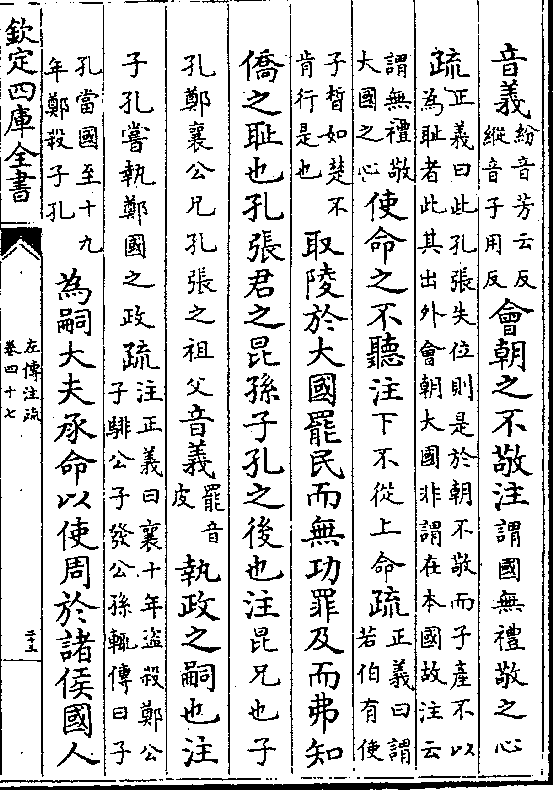 音義紛音芳云反縱音子用反會朝之不敬注謂國無禮敬之心
疏正義曰此孔張失位則是於朝不敬而子產不以為耻者此其出外會朝大國非謂在本國故注云
謂無禮敬大國之心使命之不聽注下不從上命疏正義曰謂若伯有使
子皙如楚不肯行是也取陵於大國罷民而無功罪及而弗知
僑之耻也孔張君之昆孫子孔之後也注昆兄也子
孔鄭襄公兄孔張之祖父音義罷音皮執政之嗣也注
子孔嘗執鄭國之政疏注正義曰襄十年盜殺鄭公子騑公子發公孫輒傳曰子
孔當國至十九年鄭殺子孔為嗣大夫承命以使周於諸侯國人
欽定四庫全書
左傳注疏
卷四十七